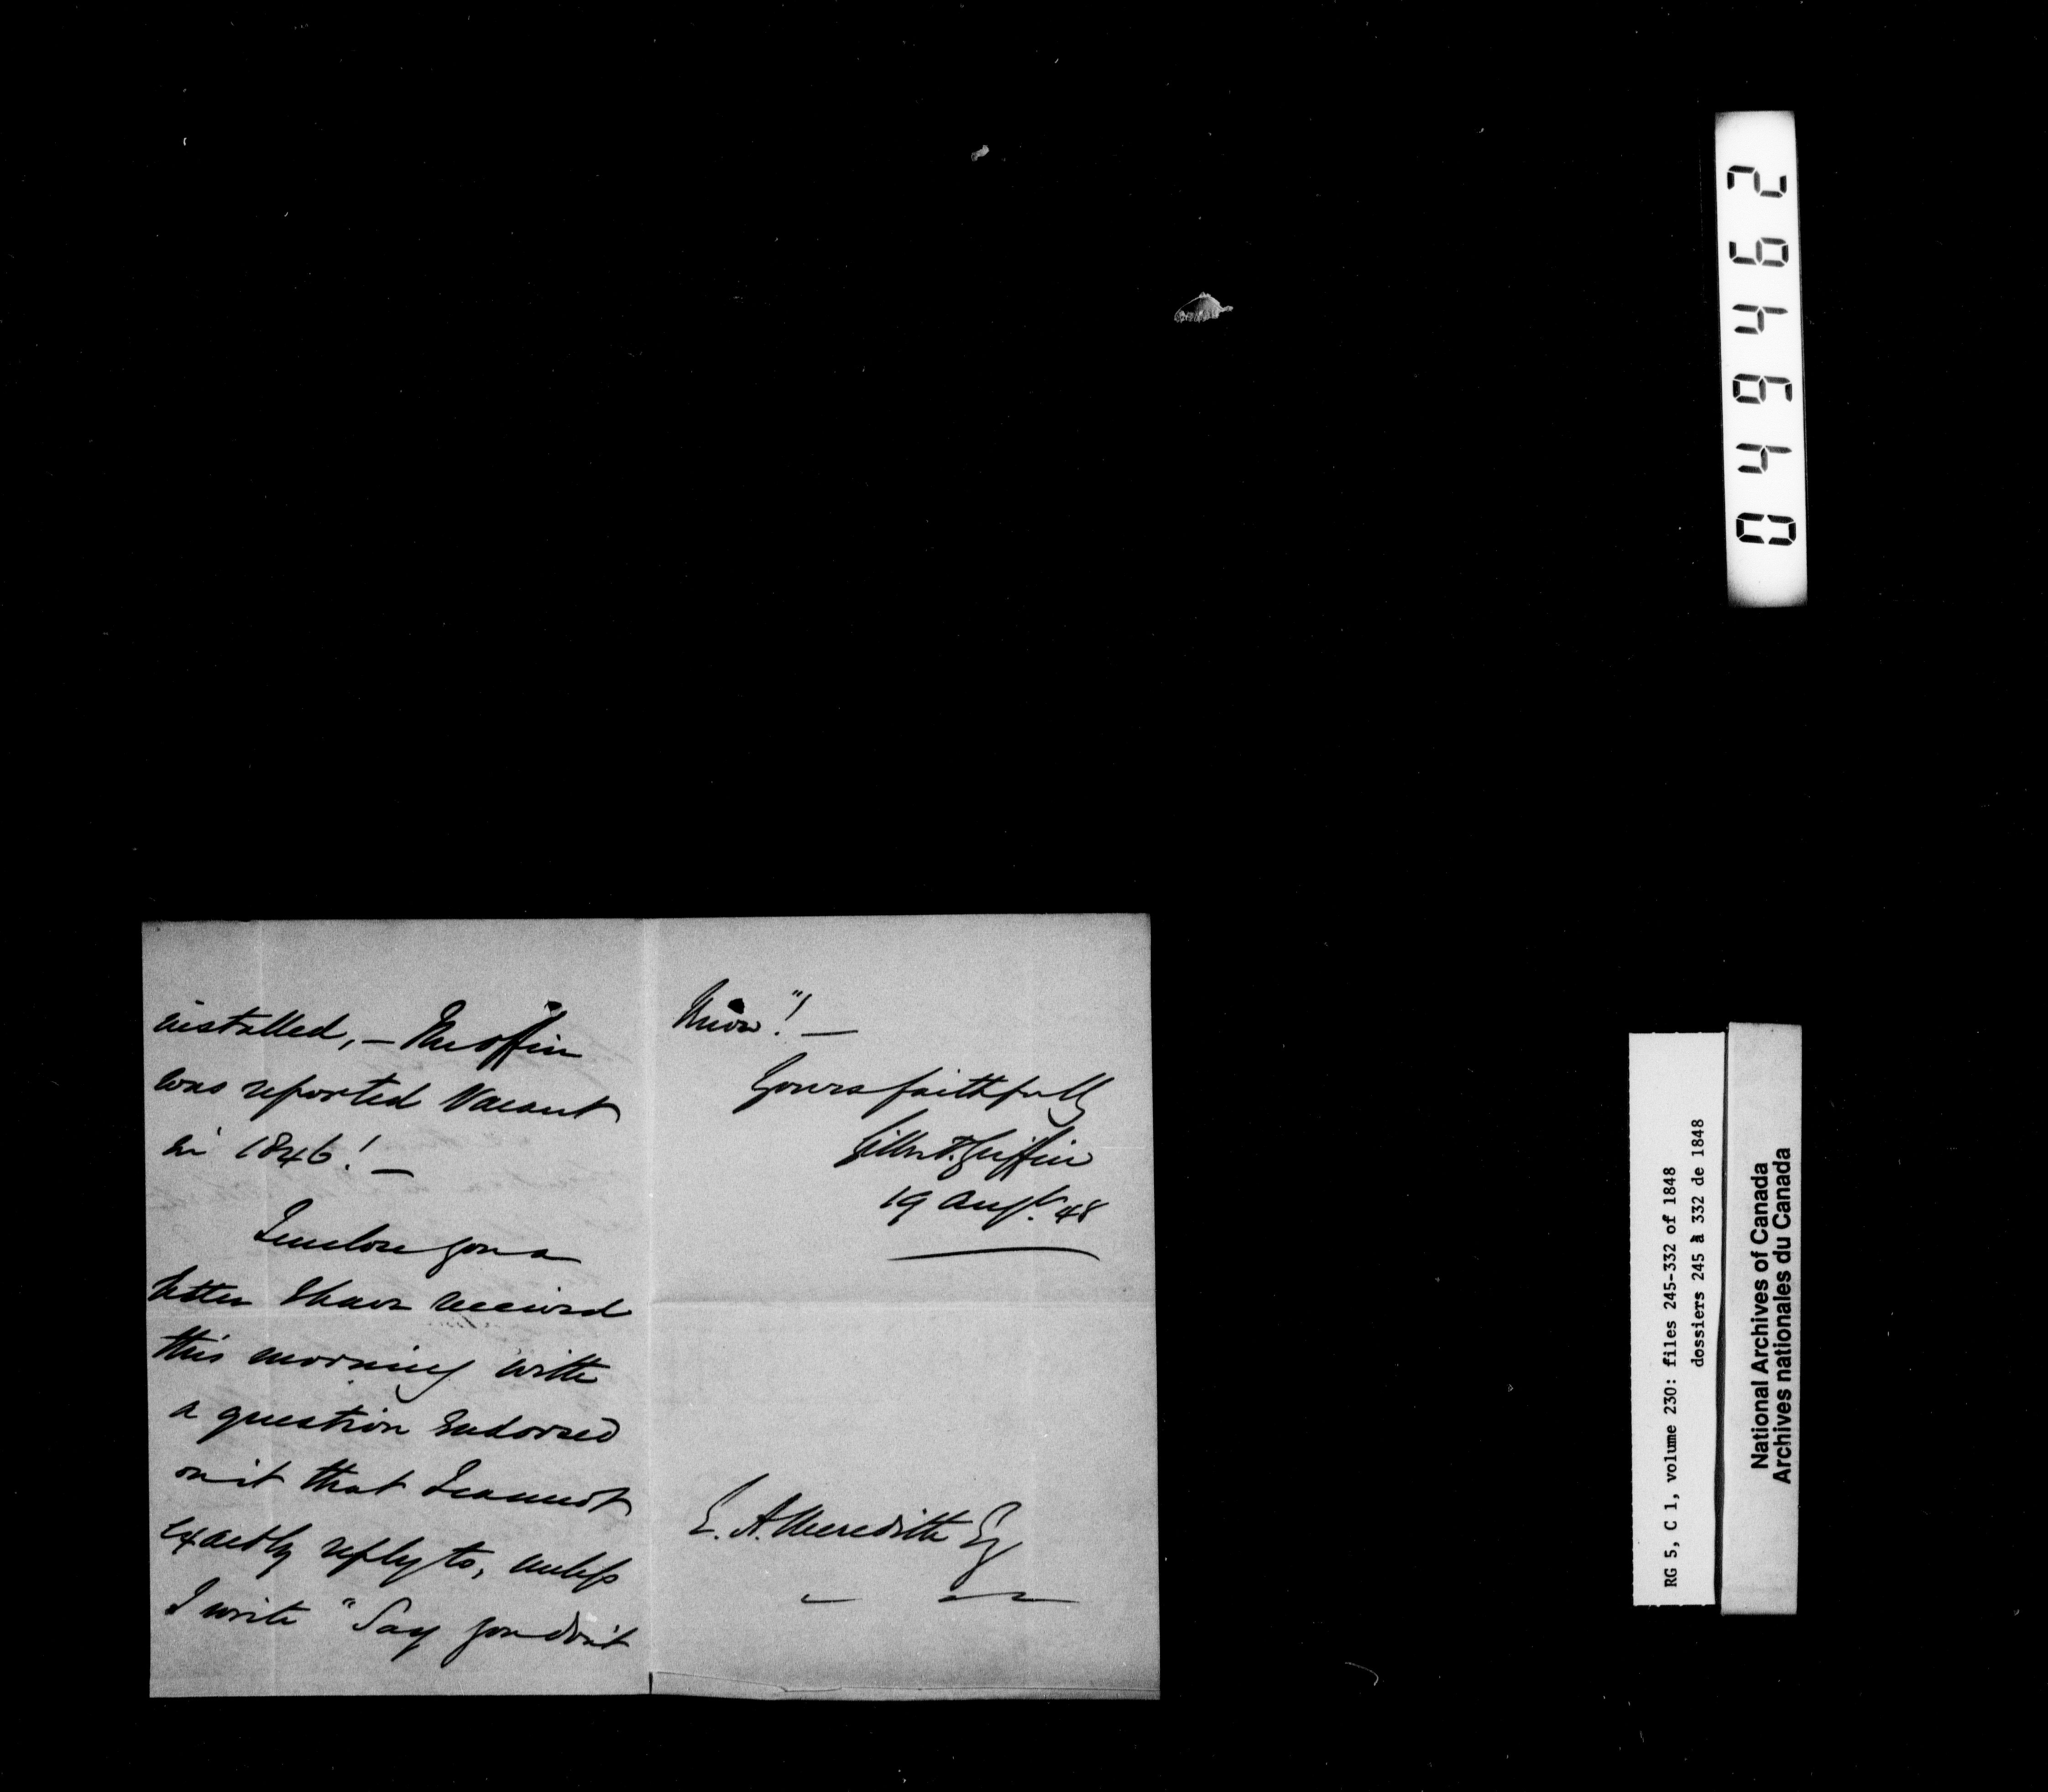 installed, — The office
was reported Vacant
in 1846! —
I enclose you a
letter I have received
this morning with
a question Endorsed
on it that I cannot
exactly reply to, unless
I write "Say you don't
know"! —
Yours faithfully
Griffin
19 Augt. 48
E. A. Meredith Esq
049462
RG 5, C 1, volume 230: files 245-332 of 1848
dossiers 245 à 332 de 1848
National Archives of Canada
Archives nationales du Canada